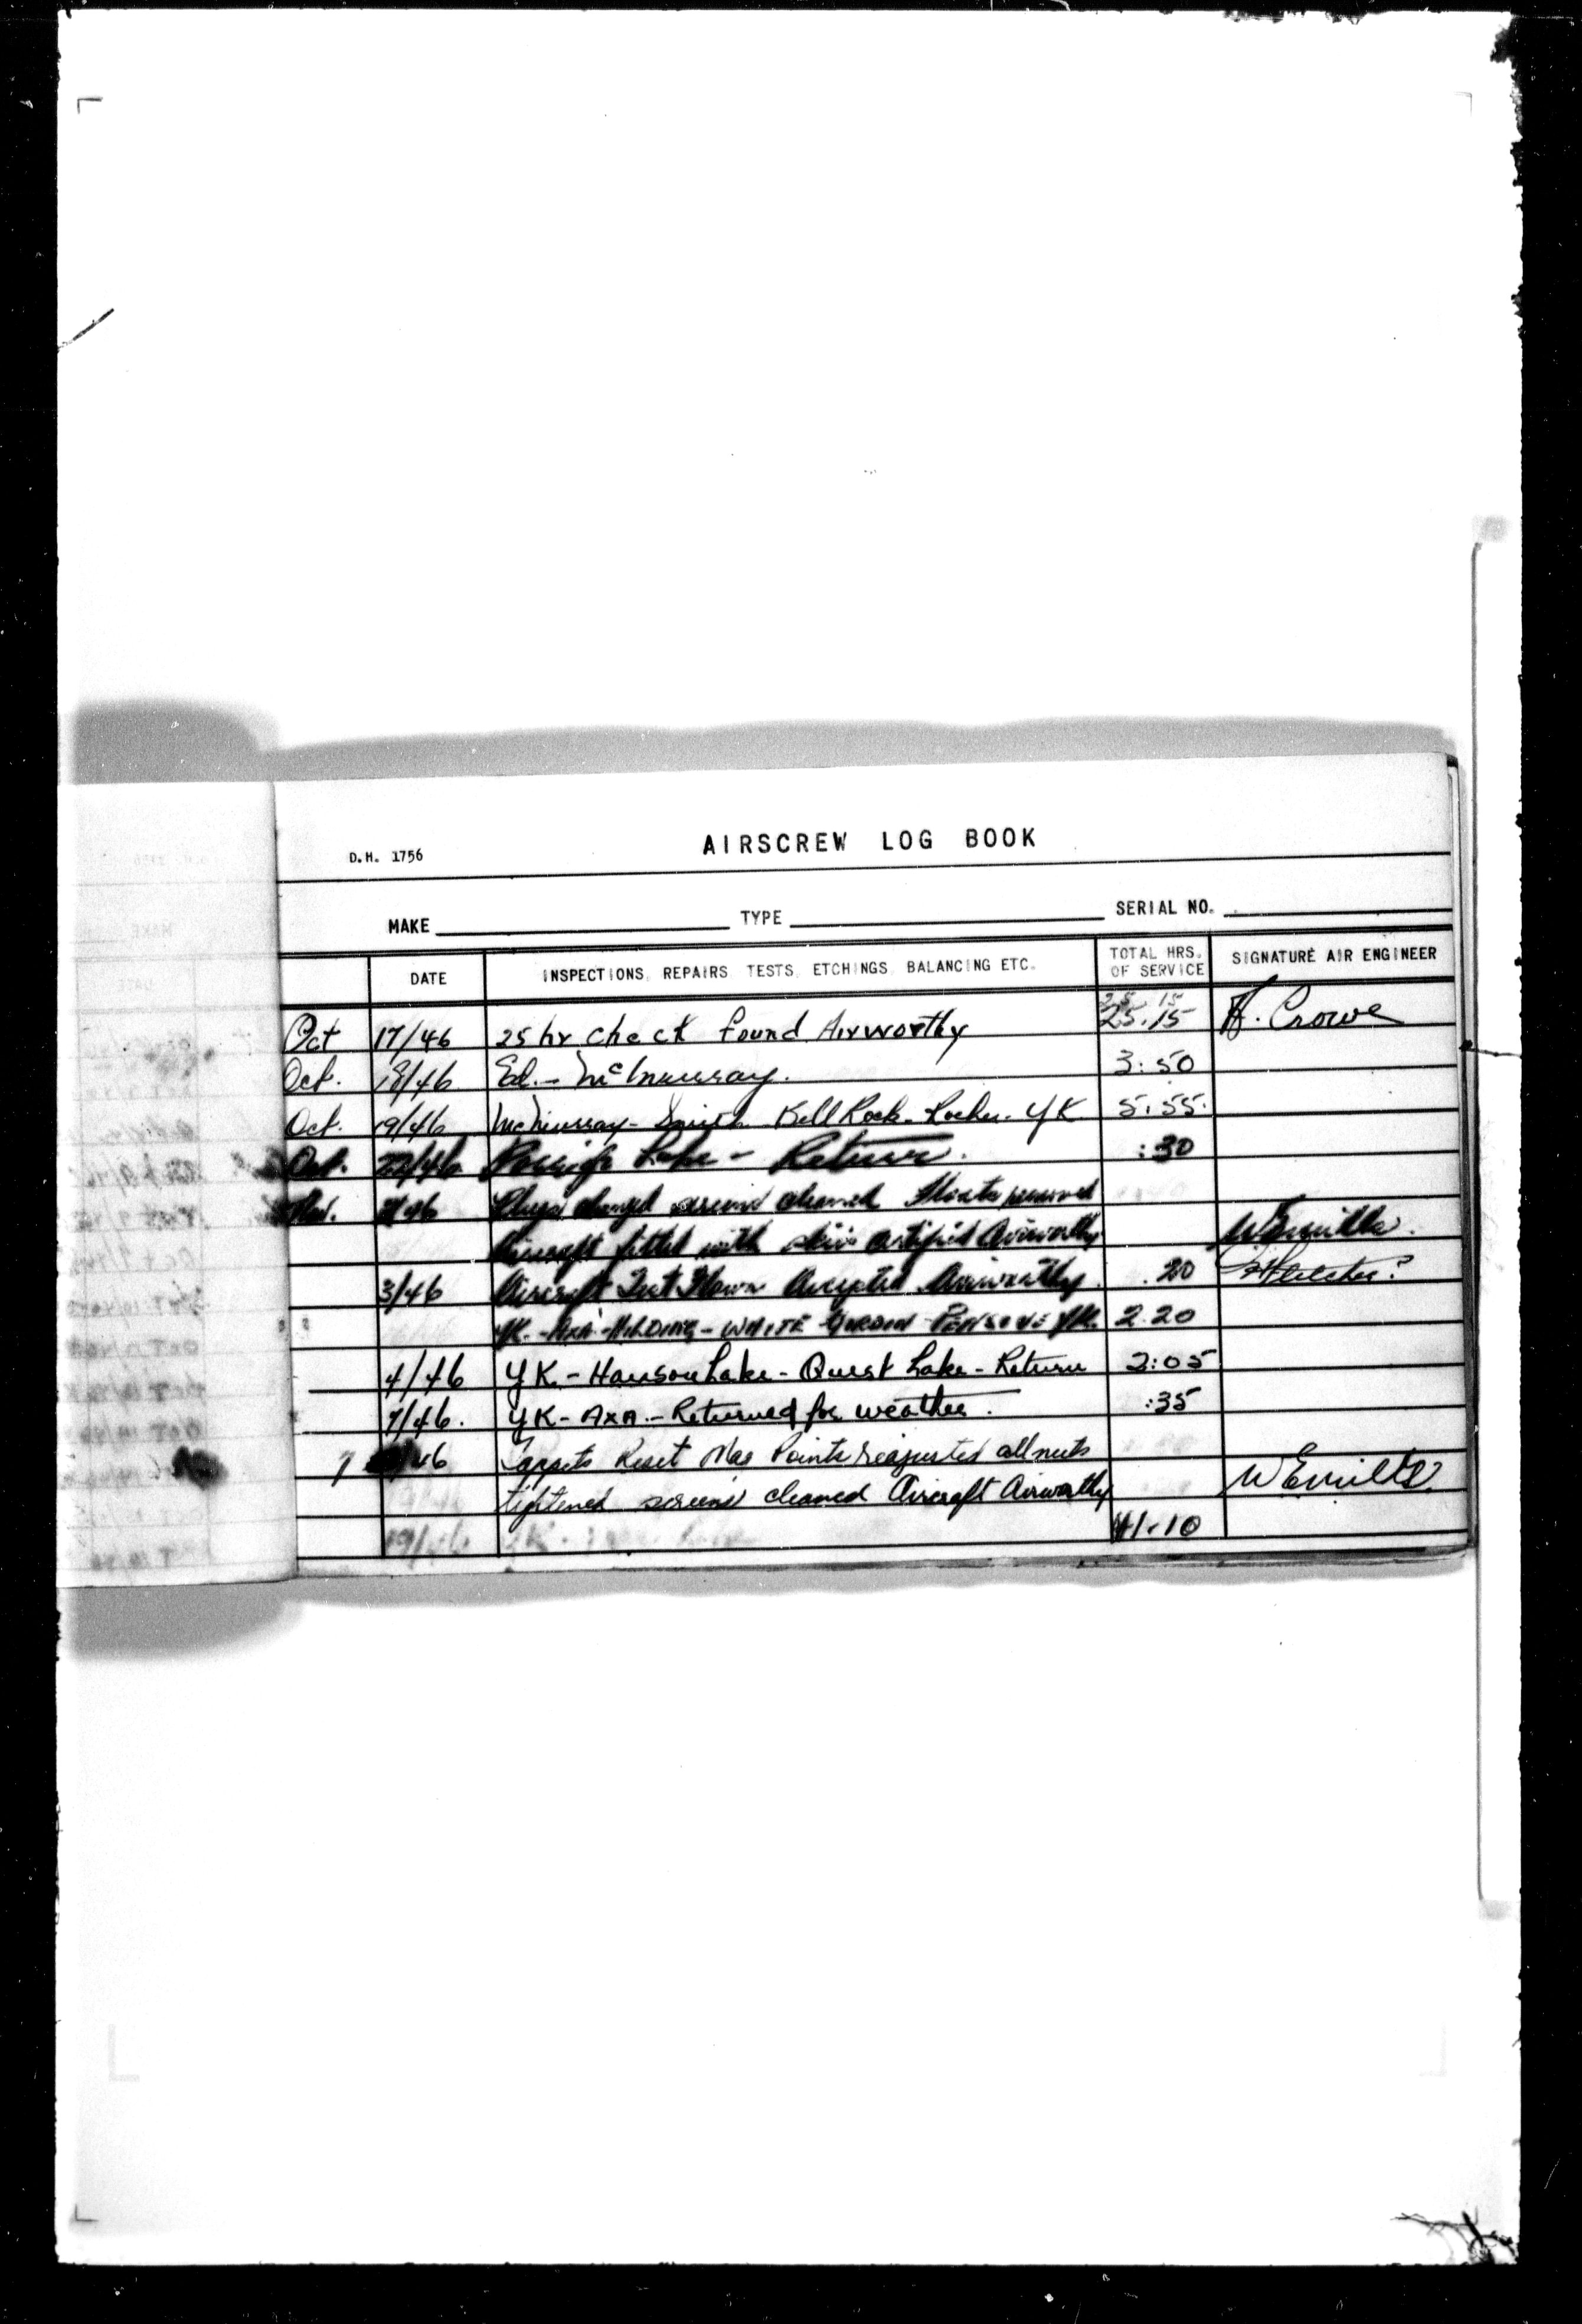 D.H. 1756 AIRSCREW LOG BOOK
MAKE TYPE SERIAL NO.
DATE INSPECTIONS, REPAIRS, TESTS, ETCHINGS, BALANCING ETC. TOTAL HRS. OF SERVICE SIGNATURE AIR ENGINEER
25.15
Oct 17/46 25 hr check found Airworthy 25.15 H. Crowe
Oct. 18/46 Ed. - McMurray. 3:50
Oct. 19/46 McMurray - Smith - Bell Rock - Rocher - YK 5.55.
Oct. 22/46 Lake - Return. :30
Nov. /46 Plugs changed screens cleaned Floats removed
Aircraft fitted with skis certified Airworthy
3/46 Aircraft Test Flown Accepted Airworthy. .20
YK. - AXA - - WHITE - GORDON - PENSIVE YK. 2.20
4/46 YK - Hanson Lake - Quest Lake - Return 2:05
7/46. YK - AXA. - Returned for weather. :35
7 /46 Tappets Reset Mag Points reajusted all nuts
tightened screens cleaned Aircraft Airworthy
41.10